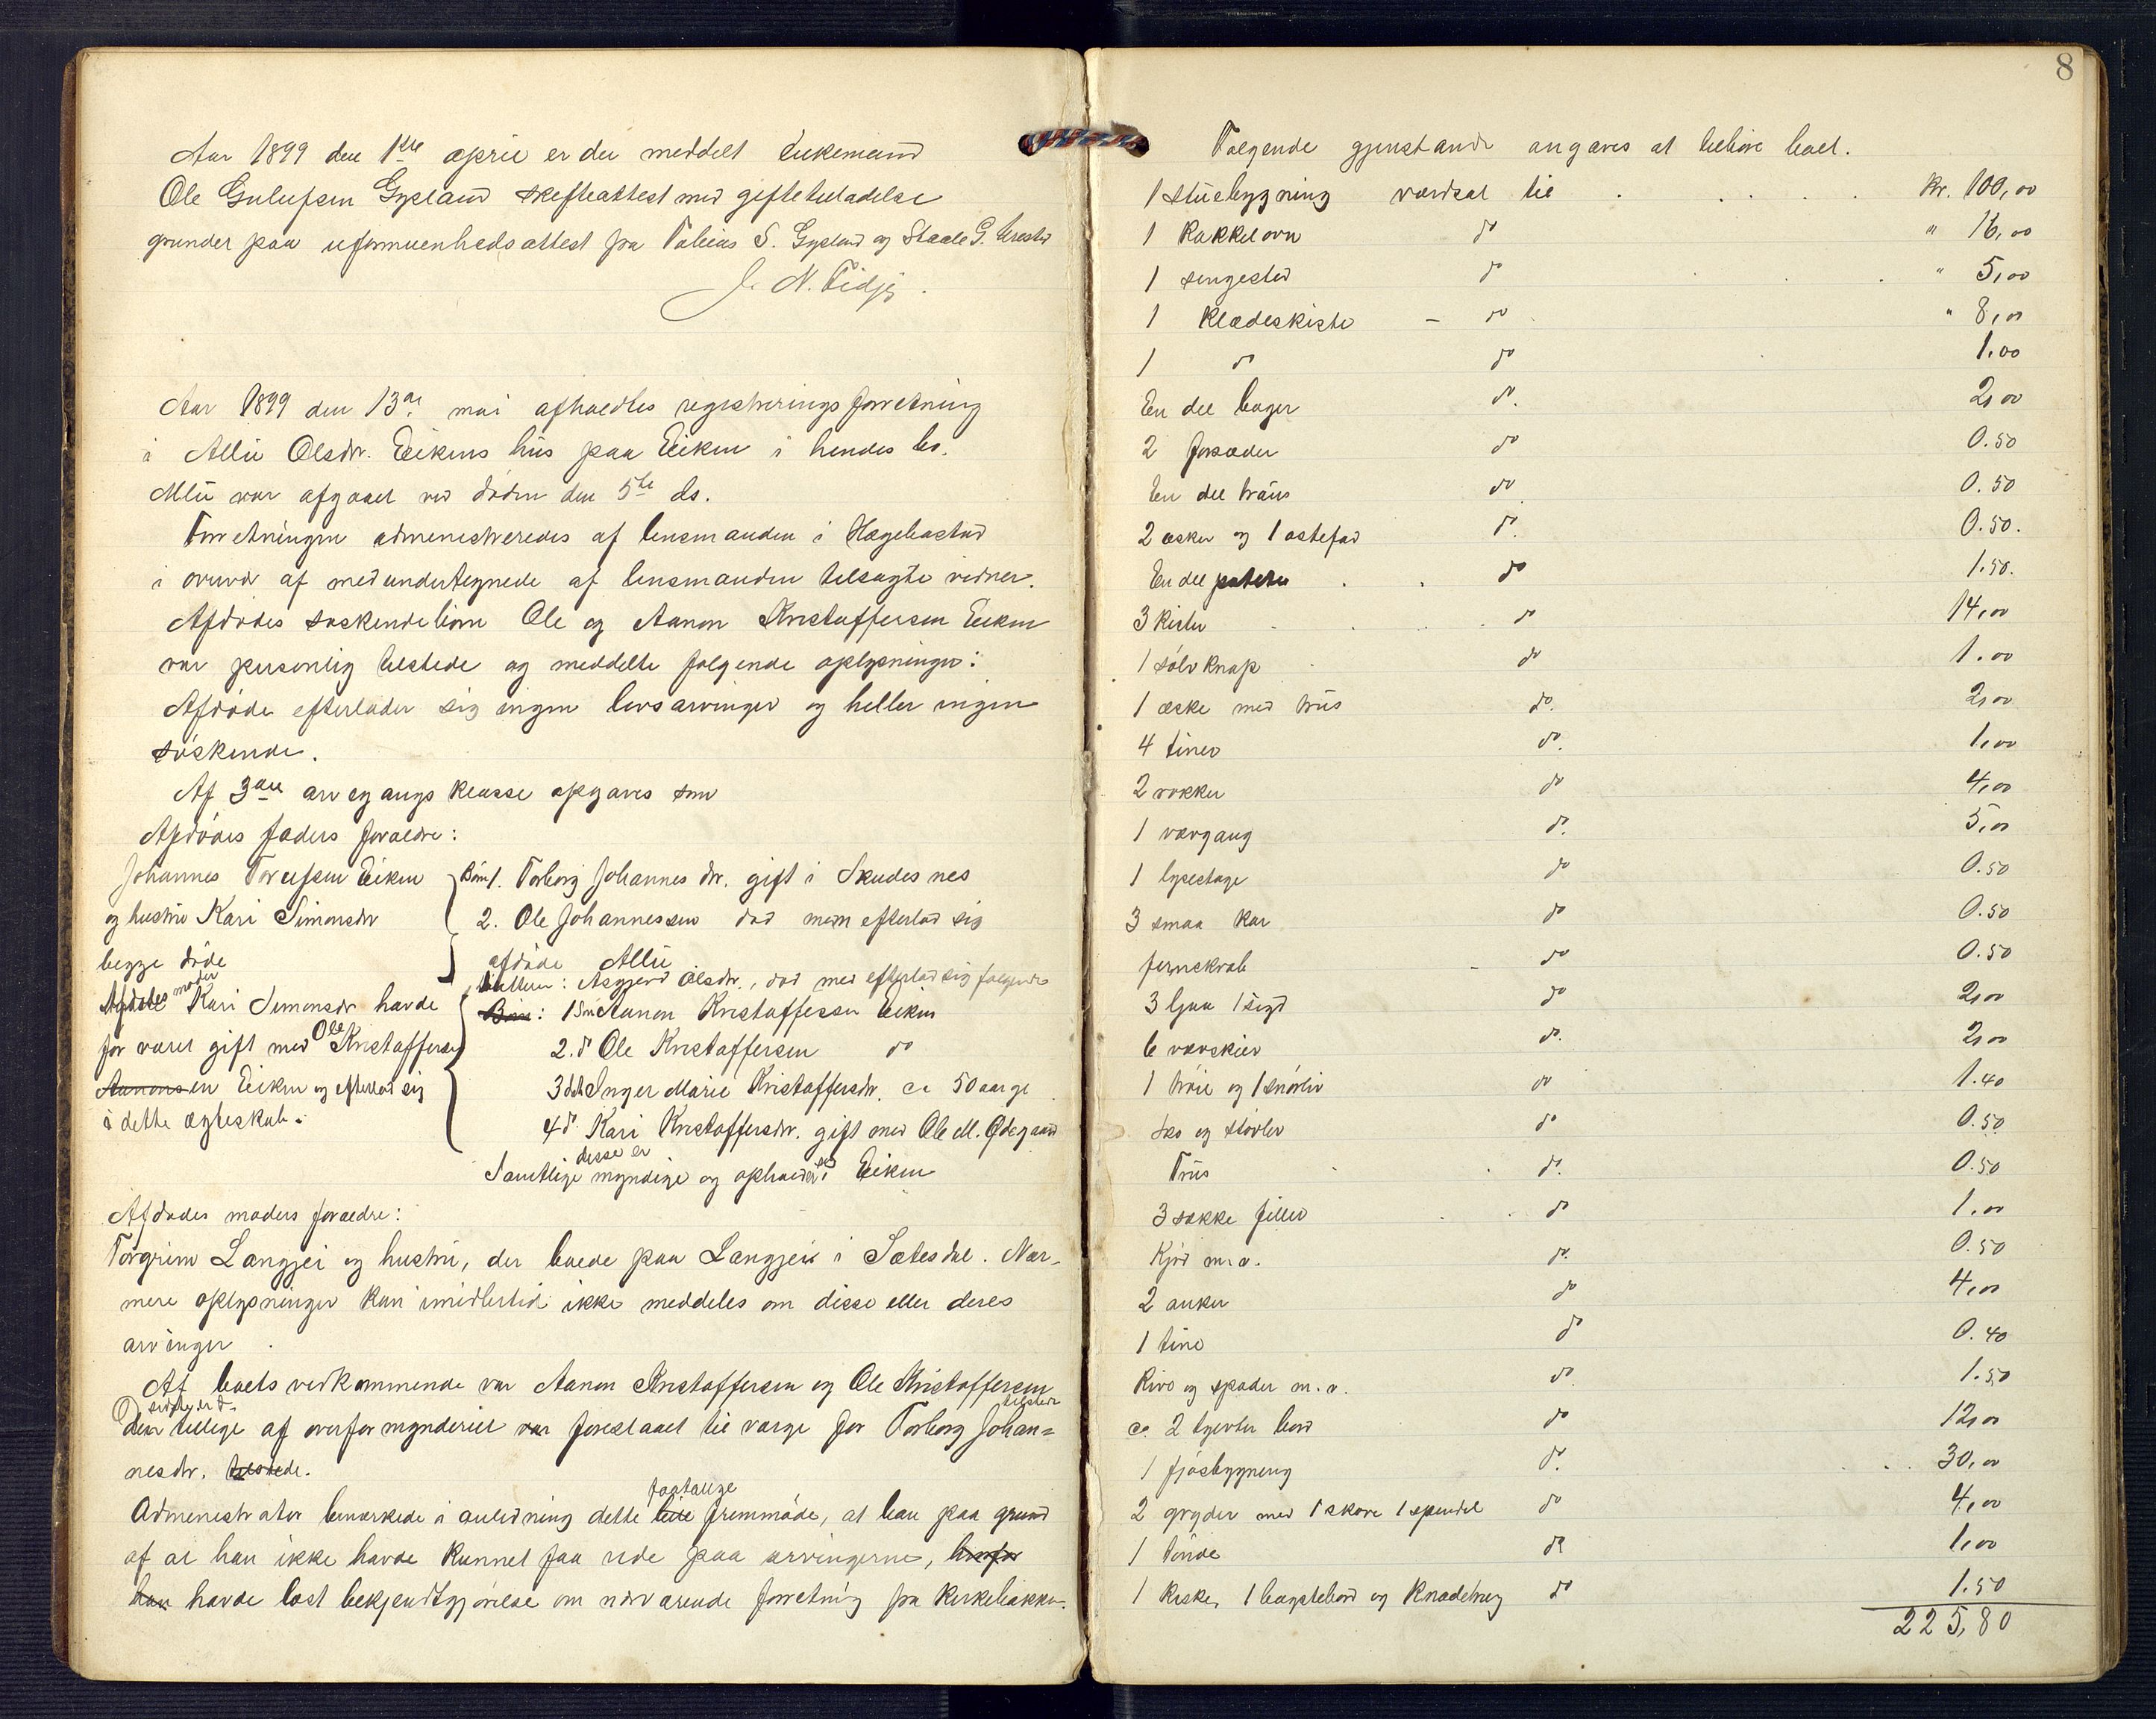 Aar 1899 den 1ste april er der meddelt Enkemand
Ole Gulufsen Gysland skifteattest med giftetilladelse
grunder paa uformuenhedsattest fra Tobias S. Gysland og Staale G.
J. N. Tidjej.
Aar 1899 den 13de mai afholdtes registreringsforretning
i Allu Olsdtr. Eikens hus paa Eiken i hendes bo.
Allu var afgaaet ved døden den 5te ds.
Forretningen administreredes af lensmanden i Hægebostad
i overvær af medundertegnede af lensmanden tilsagte vidner.
Afdødes søskendebørn Ole og Aanon Kristoffersen Eiken
var personlig tilstede og meddelte følgende oplysninger:
Afdøde efterlader sig ingen livsarvinger og heller ingen
søskende.
Af 3die arvegangsklasse opgaves som
Afdødes faders forældre:
Johannes Torufsen Eiken
og hustru Kari Simonsdtr
begge døde
Børn 1. Torborg Johannesdtr. gift i Skudesnes
2. Ole Johannessen død men efterlod sig
afdøde Allu
Afdødes moder Kari Simonsdr havde
før været gift med Ole Kristoffersen
Aanonsen Eiken og efterlod sig
i dette ægteskab:
Datteren: Asgjerd Olsdtr., død med efterlod sig følgende
Børn: 1 Søn Aanon Kristoffersen Eiken
2. do Ole Kristoffersen do
3 dtr Inger Marie Kristoffersdtr. ca 50 aar gl
4 do. Kari Kristoffersdtr. gift med Ole M. Ødegaard
Samtlige disse er myndige og opholder sig i Eiken
Afdødes moders forældre:
Torgrim Langjei og hustru, der boede paa Langjei i Sætesdal. Nær-
mere oplysninger kan imidlertid ikke meddeles om disse eller deres
arvinger.
Af boets vedkommende var Aanon Kristoffersen og Ole Kristoffersen
den tillige af overformynderiet var foreslaaet til værge for Torborg Johan=
nesdtr. tilstede.
Administrator bemærkede i anledning dette lille faatallige fremmøde, at han paa grund
af at han ikke havde kunnet faa rede paa arvingerne,
han havde læst bekjendtgjørelse om nærværende forretning fra kirkebakken.
8
Følgende gjenstande angaves at tilhøre boet.
1 stuebygning værdsat til . . . . . Kr. 100,00
1 Kakkelovn do " 16,00
1 sengested do " 5,00
1 Klædeskiste – do " 8,00
1 do do 1.00
En del bøger do. 2,00
2 forsæder do 0.50
En del træus do 0.50
2 æsker og 1 ostefad do. 0.50.
En del poteter . . do 1.50.
3 Kister do 14,00
1 sølvknap do 1.00
1 æske med trus do. 2,00
4 tiner do. 1,00
2 rokker do 4,00
1 vævgang do. 5,00
1 lysestage do 0.50
3 smaa kar do 0.50
jernskrab – do 0.50
3 ljaa 1 sigd do 2,00
6 vævskier do. 2,00
1 trøie og 1 snørliv do 1.40
sko og støvler do 0.50
Trus do. 0.50
3 sække filler do 1.00
Kjød m.v. do. 0.50
2 anker do 4,00
1 tine do 0.40
River og spader m.v. do 1.50
ca 2 tylvter bord do 12,00
1 fjøsbygning do. 30,00
2 gryder med 1 skore 1 spendel do 4,00
1 tønde do 1,00
1 Kiske, 1 bagstebord og Knadetrug do 1.50
225,80